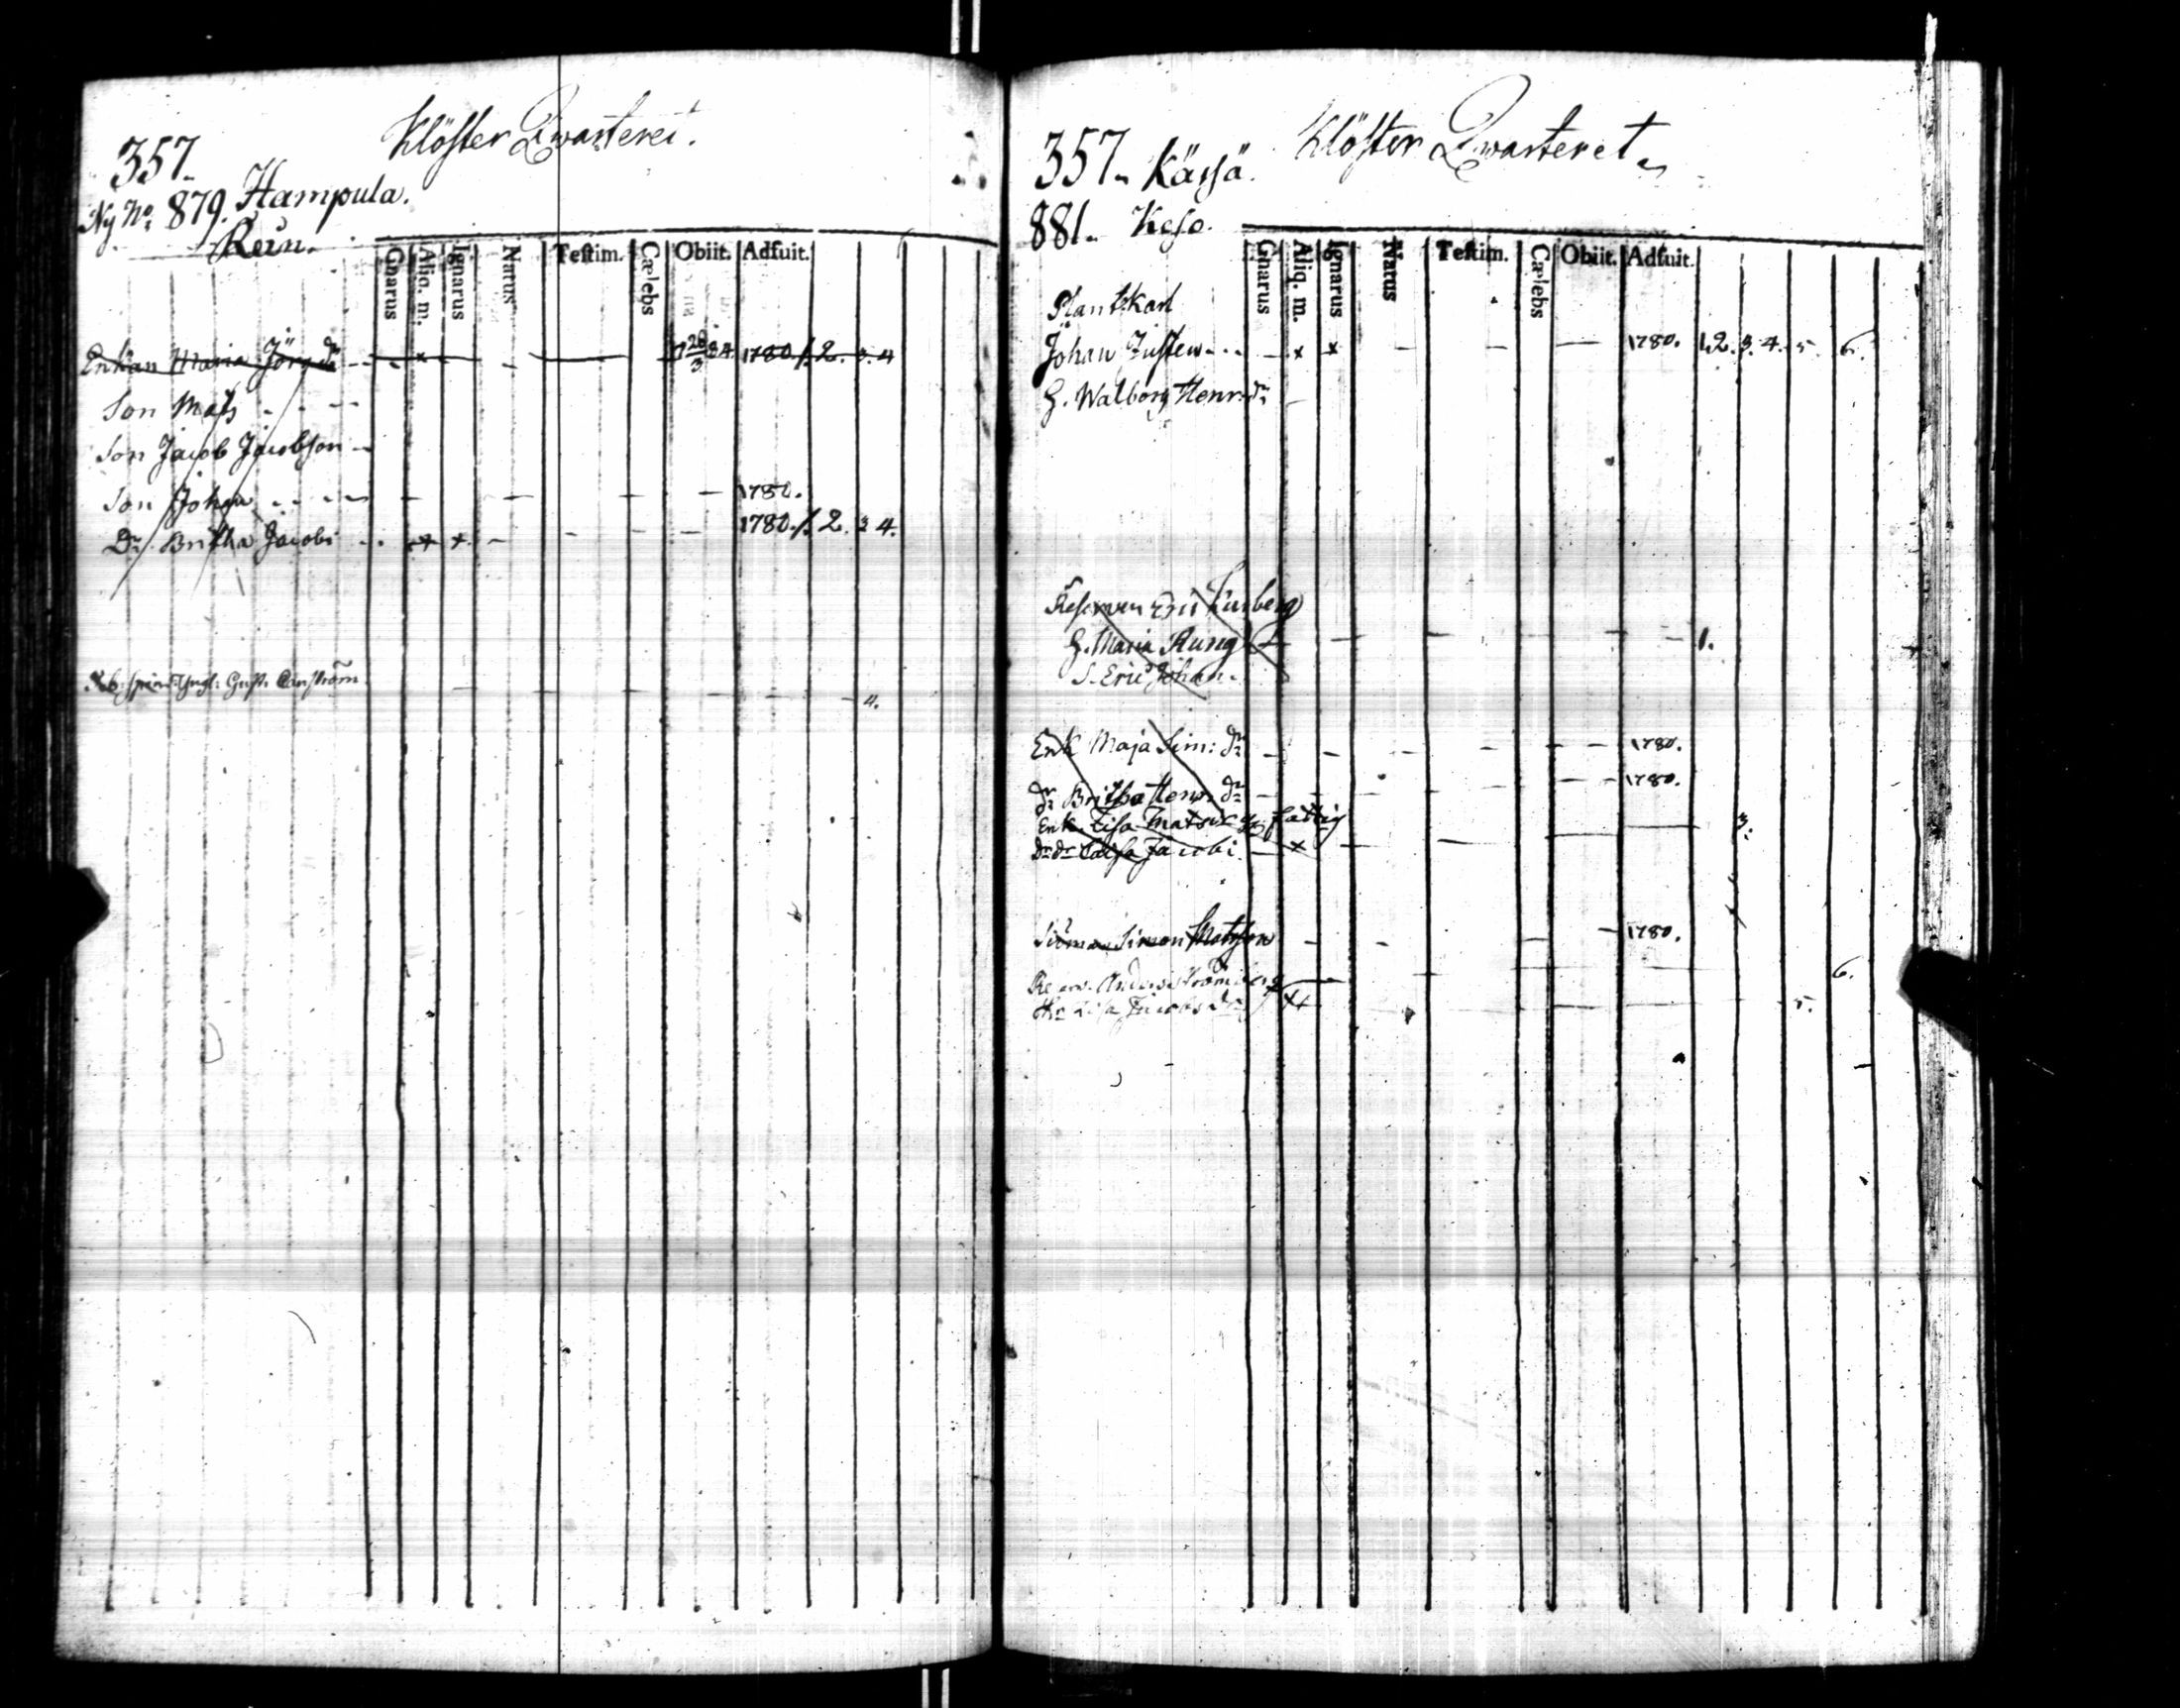 Klöster Qwarteret.
357.
Ny No: 879. Hampula.
Reün.
Gnarus Aliq. m. Ignarus Natus Testim. Cælebs Obiit. Adfuit.
Enkan Maria Jörgsdr - - x - 28/3 84 1780. 1. 2. 3. 4
Son Mats - - -
Son Jacob Jacobson -
Son Johan - - - - 1780.
Dr. Britha Jacobi - x x - - - - 1780. 1. 2. 3 4.
Gust. - - - - 4.
Klöster Qwarteret
357. Kässä.
881. Keso.
Gnarus Aliq. m. Ignarus Natus Testim. Cælebs Obiit. Adfuit.
Plantskarl
Johan Justen - - - x x - - - 1780. 1. 2. 3. 4. 5. 6.
H. Walborg Henr: dr
Eric
H. Maria Rung - - - - 1.
S. Eric Johan.
Enk Maja Sim: dr - - - - - - 1780.
dr Britha Henr. dr - - - - 1780.
Enk. Lisa Mats fattig 3.
Caisa Jacobi - x - -
Simon Matsson - - - - 1780.
Anders Strömberg - - 6.
Lisa Jacobsdr - - 5.